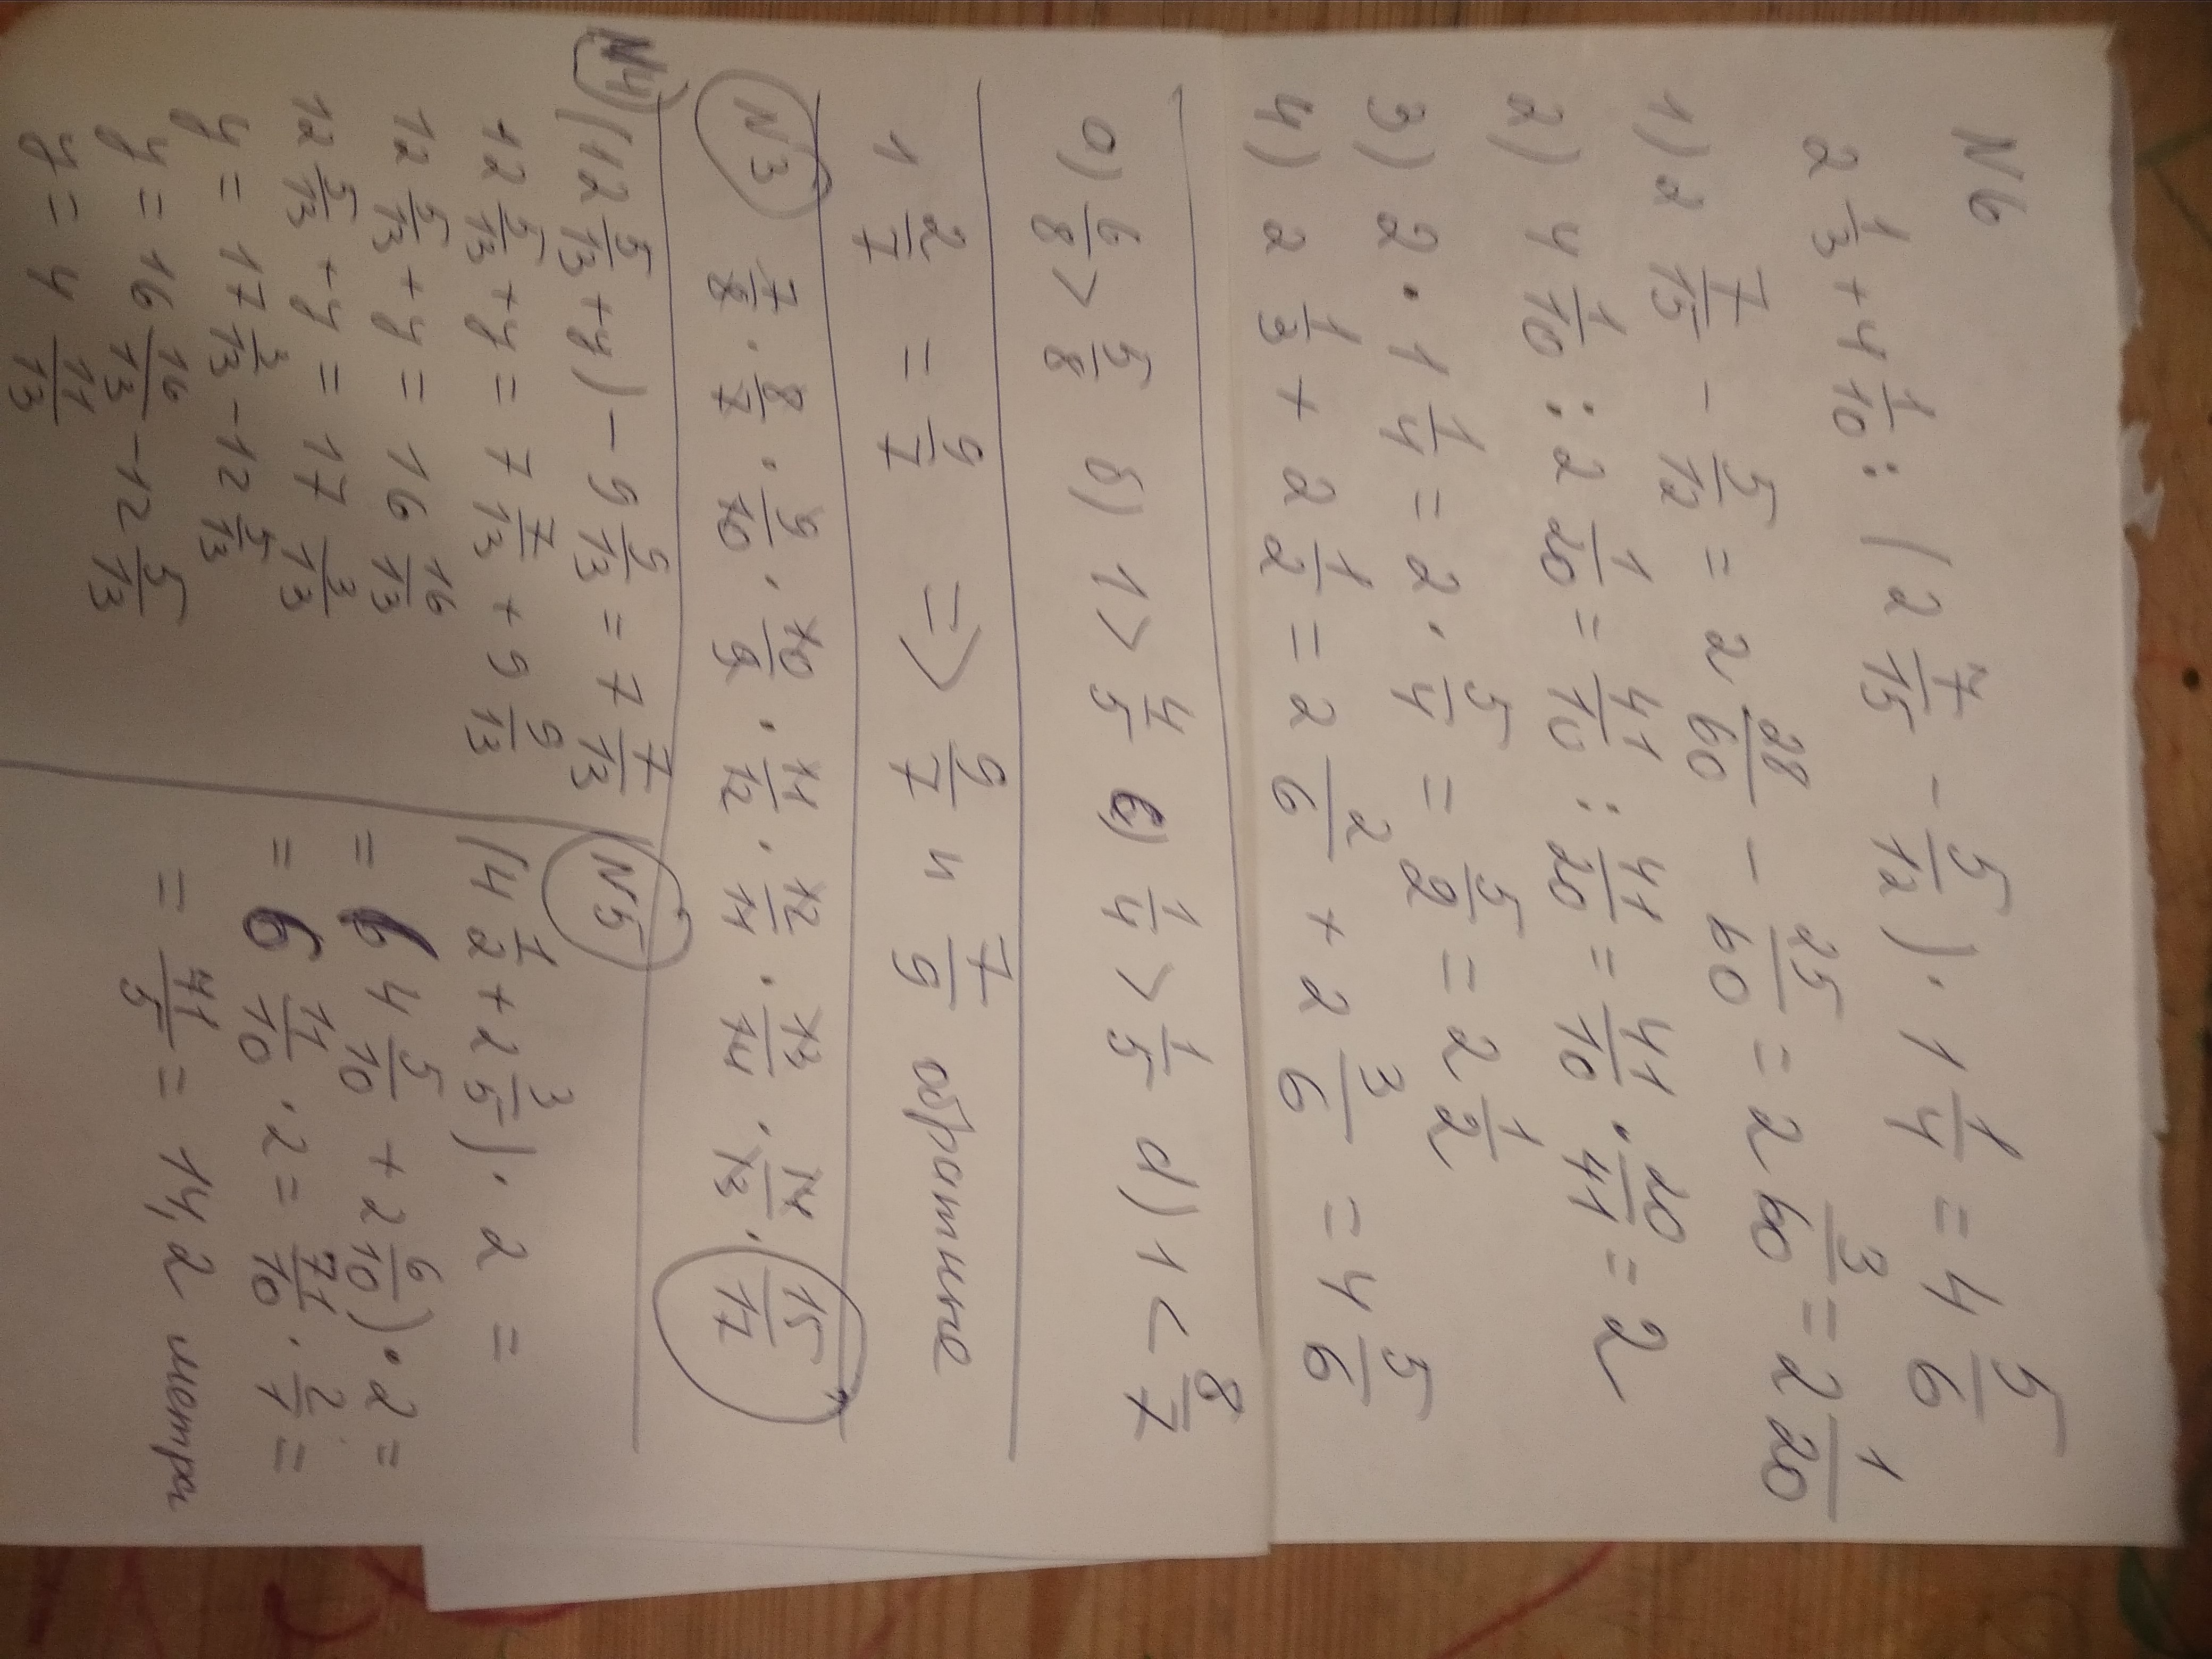 N6
2 1/3 + 4 1/10 : (2 7/15 - 5/12) · 1 1/4 = 4 5/6
1) 2 7/15 - 5/12 = 2 28/60 - 25/60 = 2 3/60 = 2 1/20
2) 4 1/10 : 2 1/20 = 41/10 : 41/20 = 41/10 · 20/41 = 2
3) 2 · 1 1/4 = 2 · 5/4 = 5/2 = 2 1/2
4) 2 1/3 + 2 1/2 = 2 2/6 + 2 3/6 = 4 5/6
а) 6/8 > 5/8 б) 1 > 4/5 в) 1/4 > 1/5 d) 1 < 8/7
1 2/7 = 9/7 => 9/7 и 7/9 обратные
N3 7/8 · 8/7 · 9/10 · 10/9 · 11/12 · 12/11 · 13/14 · 14/13 · 15/17
N4) (12 5/13 + y) - 9 9/13 = 7 7/13
12 5/13 + y = 7 7/13 + 9 9/13
12 5/13 + y = 16 16/13
12 5/13 + y = 17 3/13
y = 17 3/13 - 12 5/13
y = 16 16/13 - 12 5/13
y = 4 11/13
N5
(4 1/2 + 2 3/5) · 2 =
= (4 5/10 + 2 6/10) · 2 =
= 6 11/10 · 2 = 71/10 · 2/1 =
= 71/5 = 14,2 метра